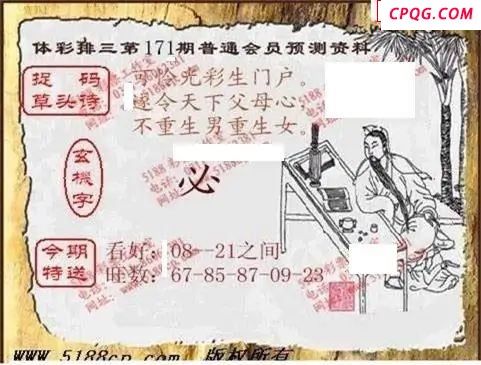 CPQG.COM
体彩排三第171期普通会员预测资料
捉 码
草头诗
可 光彩生门户。
遂令天下父母心
不重生男重生女。
玄機字
必
今期
特送
看好：08--21之间
旺数：67-85-87-09-23
www.5188cp.com 版权所有